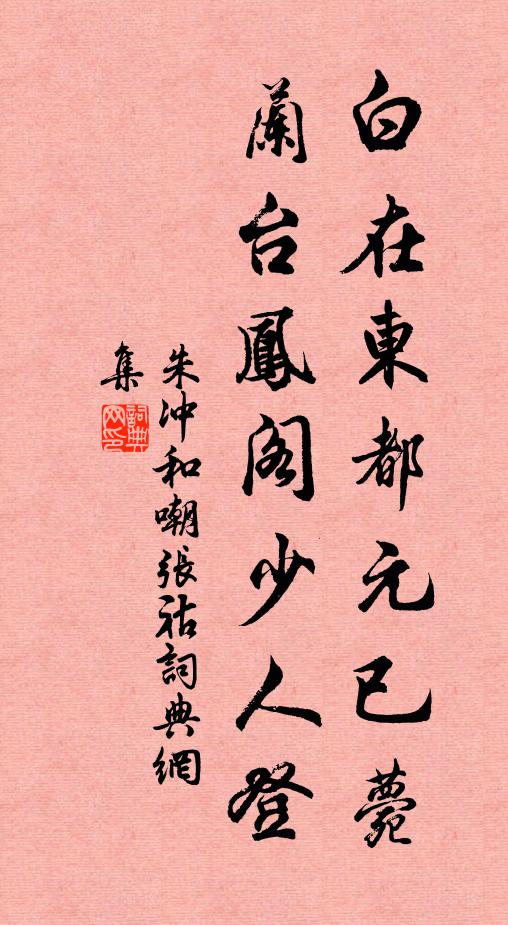 白在東都元已薨
蘭台鳳閣少人登
朱沖和嘲張祜詞典網
集
詞典网印